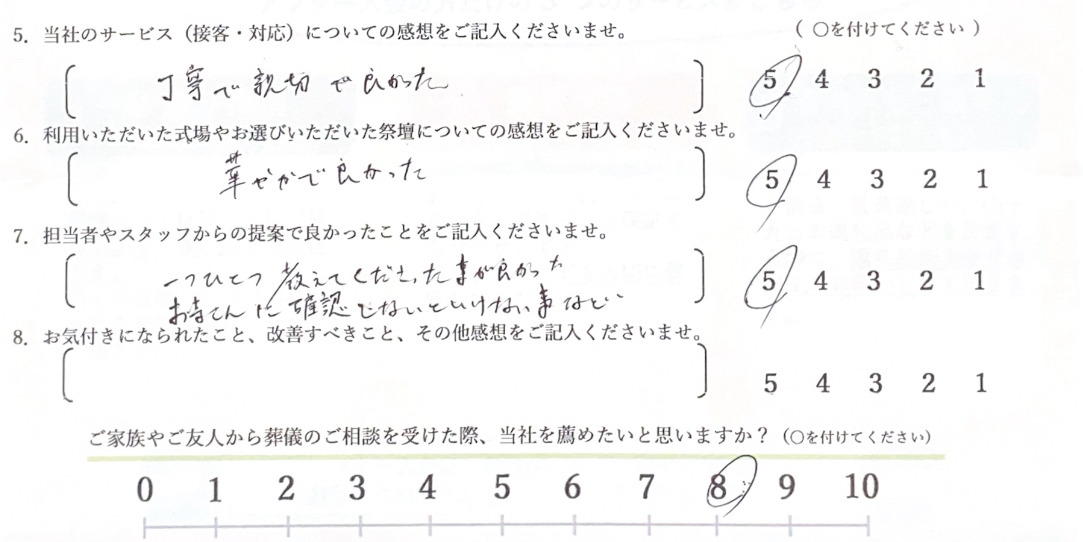 5. 当社のサービス（接客・対応）についての感想をご記入くださいませ。 （ ○を付けてください ）
丁寧で親切で良かった 5 4 3 2 1
6. 利用いただいた式場やお選びいただいた祭壇についての感想をご記入くださいませ。
華やかで良かった 5 4 3 2 1
7. 担当者やスタッフからの提案で良かったことをご記入くださいませ。
一つひとつ教えてくださった事が良かった 5 4 3 2 1
お寺さんに確認しないといけない事など
8. お気付きになられたこと、改善すべきこと、その他感想をご記入くださいませ。
5 4 3 2 1
ご家族やご友人から葬儀のご相談を受けた際、当社を薦めたいと思いますか？（○を付けてください）
0 1 2 3 4 5 6 7 8 9 10